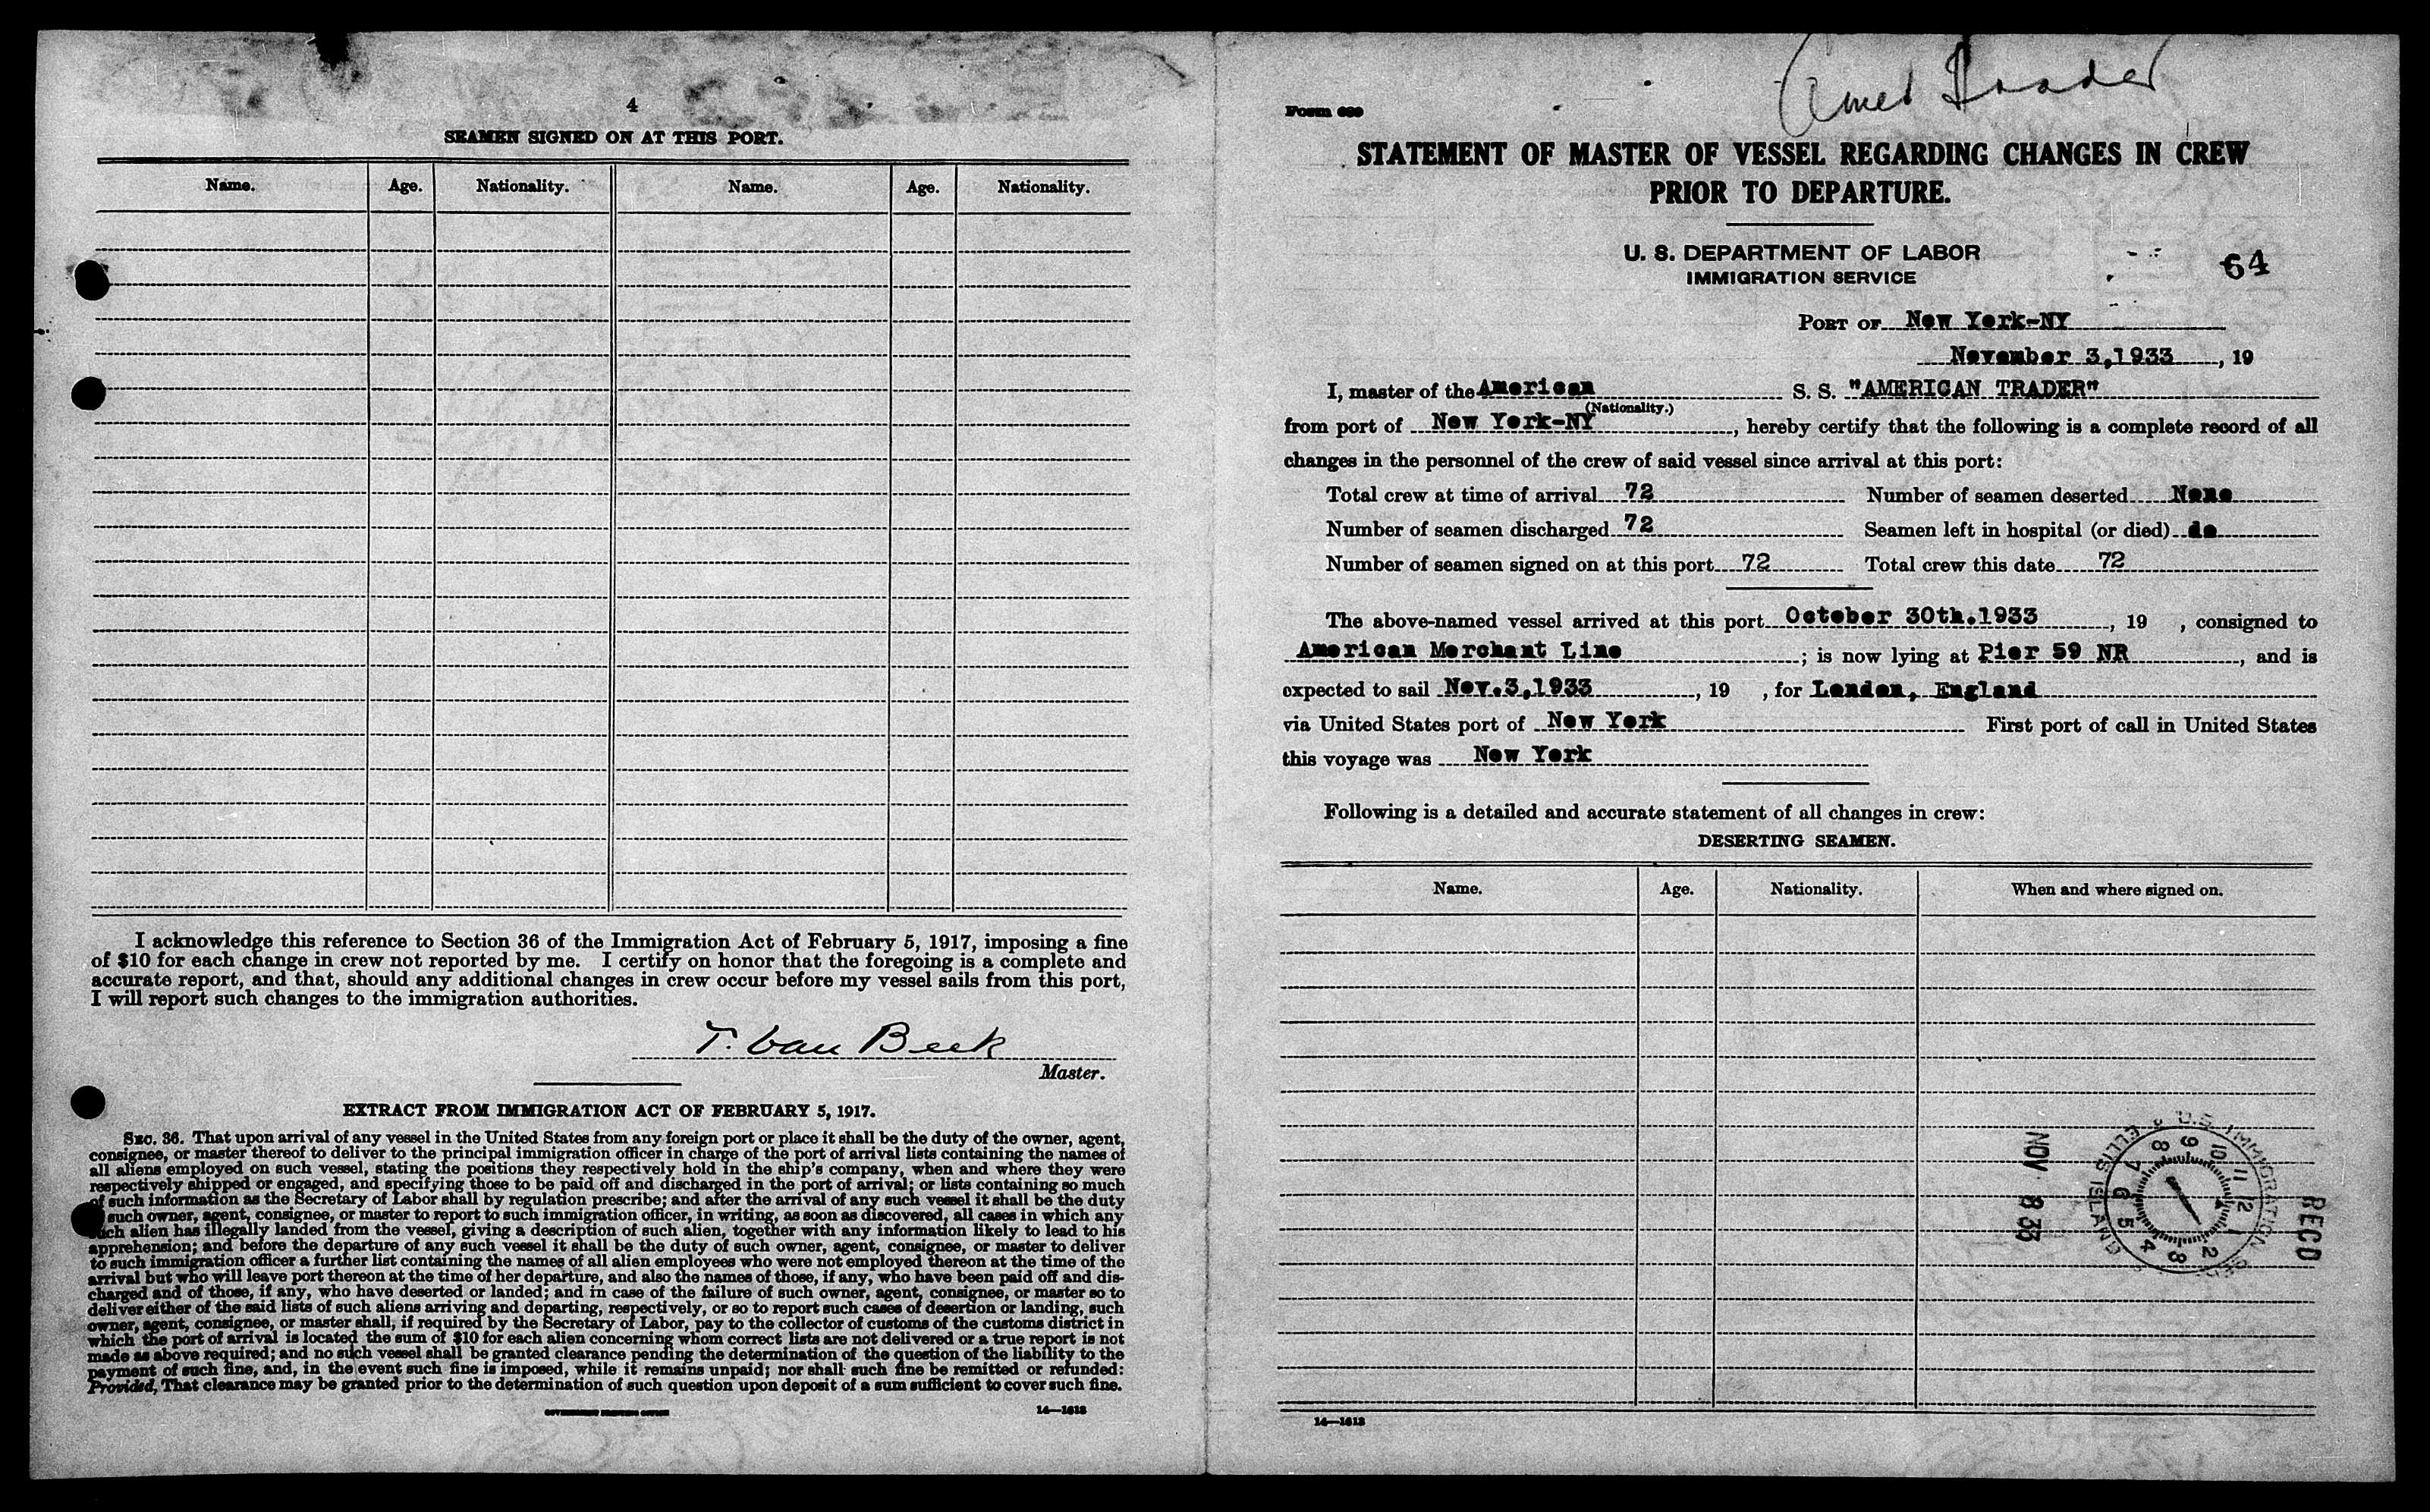 4
SEAMEN SIGNED ON AT THIS PORT.
Name. Age. Nationality. Name. Age. Nationality.
I acknowledge this reference to Section 36 of the Immigration Act of February 5, 1917, imposing a fine
of $10 for each change in crew not reported by me. I certify on honor that the foregoing is a complete and
accurate report, and that, should any additional changes in crew occur before my vessel sails from this port,
I will report such changes to the immigration authorities.
T. van Beek
Master.
EXTRACT FROM IMMIGRATION ACT OF FEBRUARY 5, 1917.
SEC. 36. That upon arrival of any vessel in the United States from any foreign port or place it shall be the duty of the owner, agent,
consignee, or master thereof to deliver to the principal immigration officer in charge of the port of arrival lists containing the names of
all aliens employed on such vessel, stating the positions they respectively hold in the ship's company, when and where they were
respectively shipped or engaged, and specifying those to be paid off and discharged in the port of arrival; or lists containing so much
of such information as the Secretary of Labor shall by regulation prescribe; and after the arrival of any such vessel it shall be the duty
such owner, agent, consignee, or master to report to such immigration officer, in writing, as soon as discovered, all cases in which any
such alien has illegally landed from the vessel, giving a description of such alien, together with any information likely to lead to his
apprehension; and before the departure of any such vessel it shall be the duty of such owner, agent, consignee, or master to deliver
to such immigration officer a further list containing the names of all alien employees who were not employed thereon at the time of the
arrival but who will leave port thereon at the time of her departure, and also the names of those, if any, who have been paid off and dis-
charged and of those, if any, who have deserted or landed; and in case of the failure of such owner, agent, consignee, or master so to
deliver either of the said lists of such aliens arriving and departing, respectively, or so to report such cases of desertion or landing, such
owner, agent, consignee, or master shall, if required by the Secretary of Labor, pay to the collector of customs of the customs district in
which the port of arrival is located the sum of $10 for each alien concerning whom correct lists are not delivered or a true report is not
made as above required; and no such vessel shall be granted clearance pending the determination of the question of the liability to the
payment of such fine, and, in the event such fine is imposed, while it remains unpaid; nor shall such fine be remitted or refunded:
Provided, That clearance may be granted prior to the determination of such question upon deposit of a sum sufficient to cover such fine.
GOVERNMENT PRINTING OFFICE 14—1613
Amer Trader
Form 689
STATEMENT OF MASTER OF VESSEL REGARDING CHANGES IN CREW
PRIOR TO DEPARTURE.
U. S. DEPARTMENT OF LABOR
IMMIGRATION SERVICE
64
PORT OF New York-NY
November 3,1933, 19
I, master of the American S. S. "AMERICAN TRADER"
(Nationality.)
from port of New York-NY, hereby certify that the following is a complete record of all
changes in the personnel of the crew of said vessel since arrival at this port:
Total crew at time of arrival 72 Number of seamen deserted None
Number of seamen discharged 72 Seamen left in hospital (or died) do
Number of seamen signed on at this port 72 Total crew this date 72
The above-named vessel arrived at this port October 30th.1933, 19 , consigned to
American Merchant Line; is now lying at Pier 59 NR, and is
expected to sail Nov.3,1933, 19 , for London, England
via United States port of New York First port of call in United States
this voyage was New York
Following is a detailed and accurate statement of all changes in crew:
DESERTING SEAMEN.
Name. Age. Nationality. When and where signed on.
NOV 8 33
U.S. IMMIGRATION
ELLIS ISLAND
12 1 2 3 4 5 6 7 8 9 10 11
RECD
14—1613